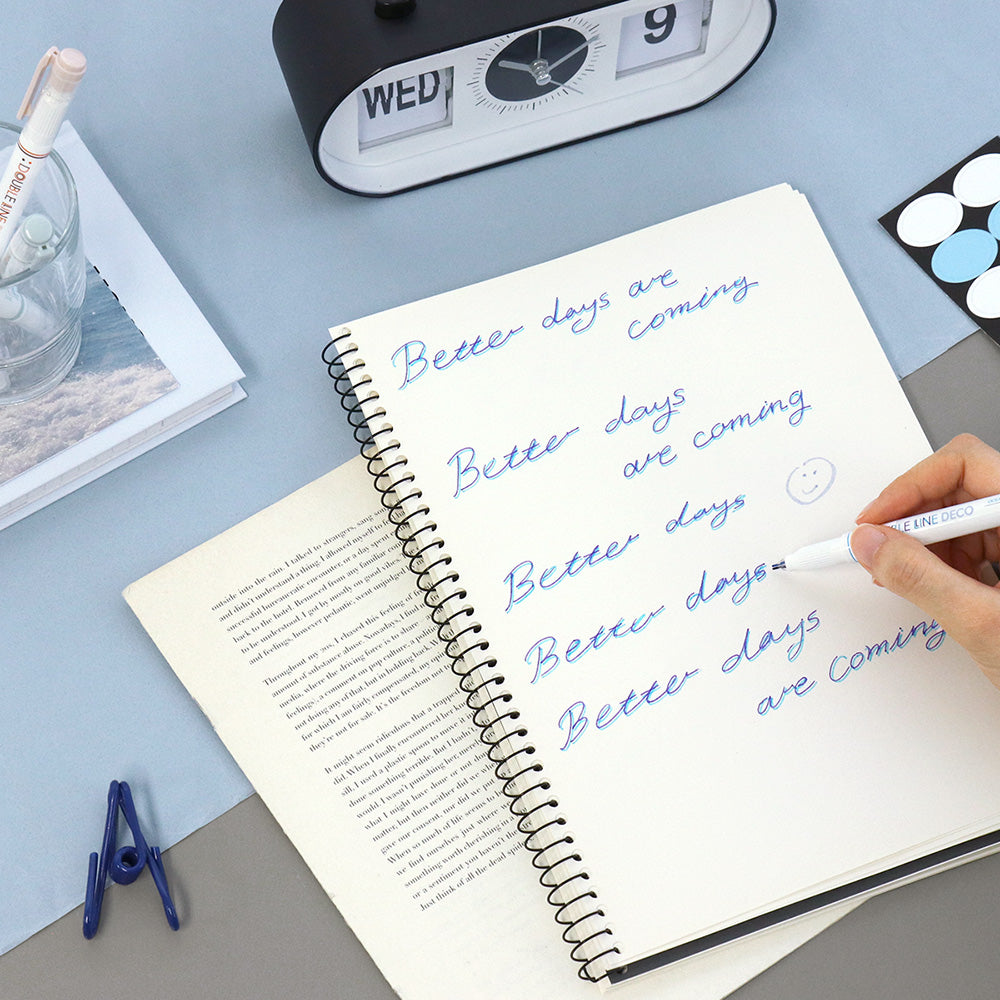 WED 9
DOUBLE LINE
Better days are
coming
Better days
are coming
Better days
Better days
Better days
are coming
LINE DECO
outside into the rain. I talked to strangers, sang
and didn't understand a thing. I allowed myself to
successful bureaucratic encounter, or a day spent
back to the hotel. Removed from any familiar
to be understood, I got by mostly on good
and feelings, however pedantic, went unjudged
Throughout my 20s, I chased this feeling of
amount of substance abuse. Nowadays, I
media, where the driving force is to share
feelings, a comment on pop culture, a
not doing any of that, but in holding back.
for which I am fairly compensated, my
they're not for sale. It's the freedom not
It might seem ridiculous that a
did. When I finally encountered her
sill, I used a plastic spoon to move
done something terrible. But I
would. I wasn't punishing her,
what I might have done or not
matter, but then neither did we
gave our consent, nor did we
When so much of life seems to
we find ourselves just where
something worth cherishing in
or a sentiment you haven't
Just think of all the dead